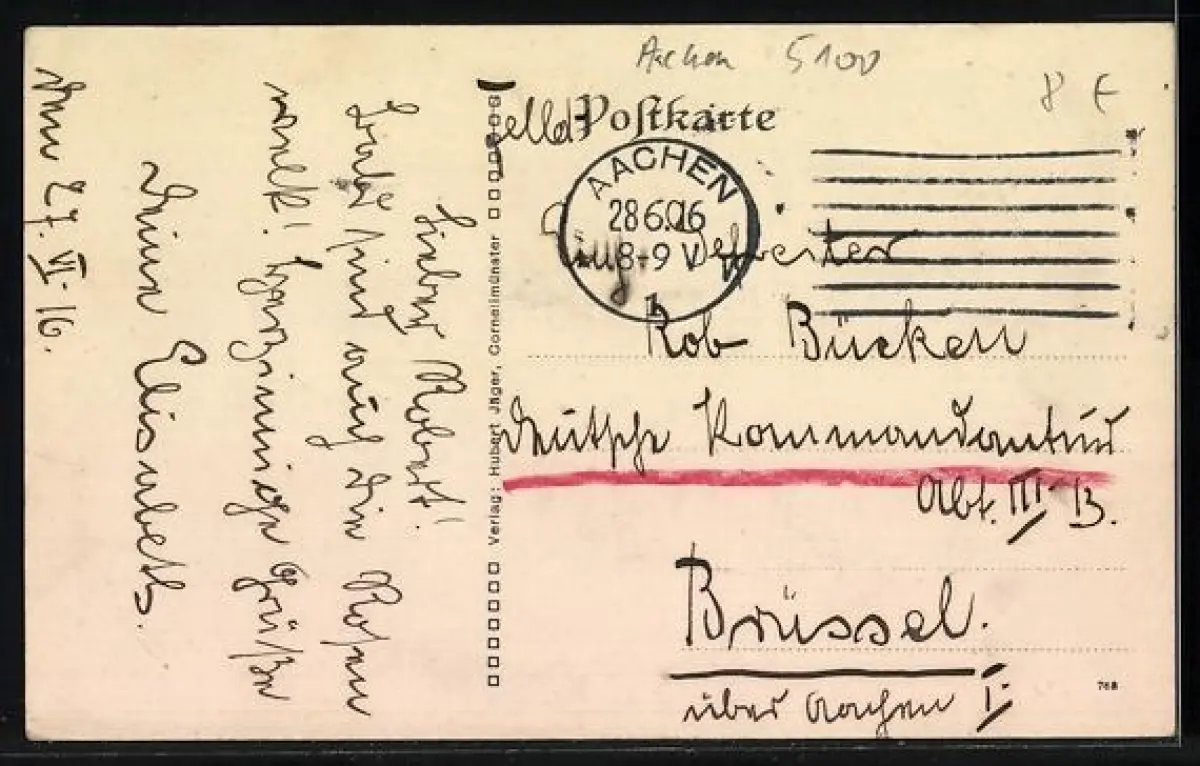 Aachen 5100
8 €
Feld Postkarte
AACHEN
28 6.16
8-9 V
1
Rob Bücken
deutsche Kommandantur
Abt. III B.
Brüssel.
über Aachen I.
768
Verlag: Hubert Jäger, Cornelimünster
Lieber Robert!
sind auch die Rosen
welk! herzinnige Grüße
Deine Elisabeth.
den 27. VI. 16.